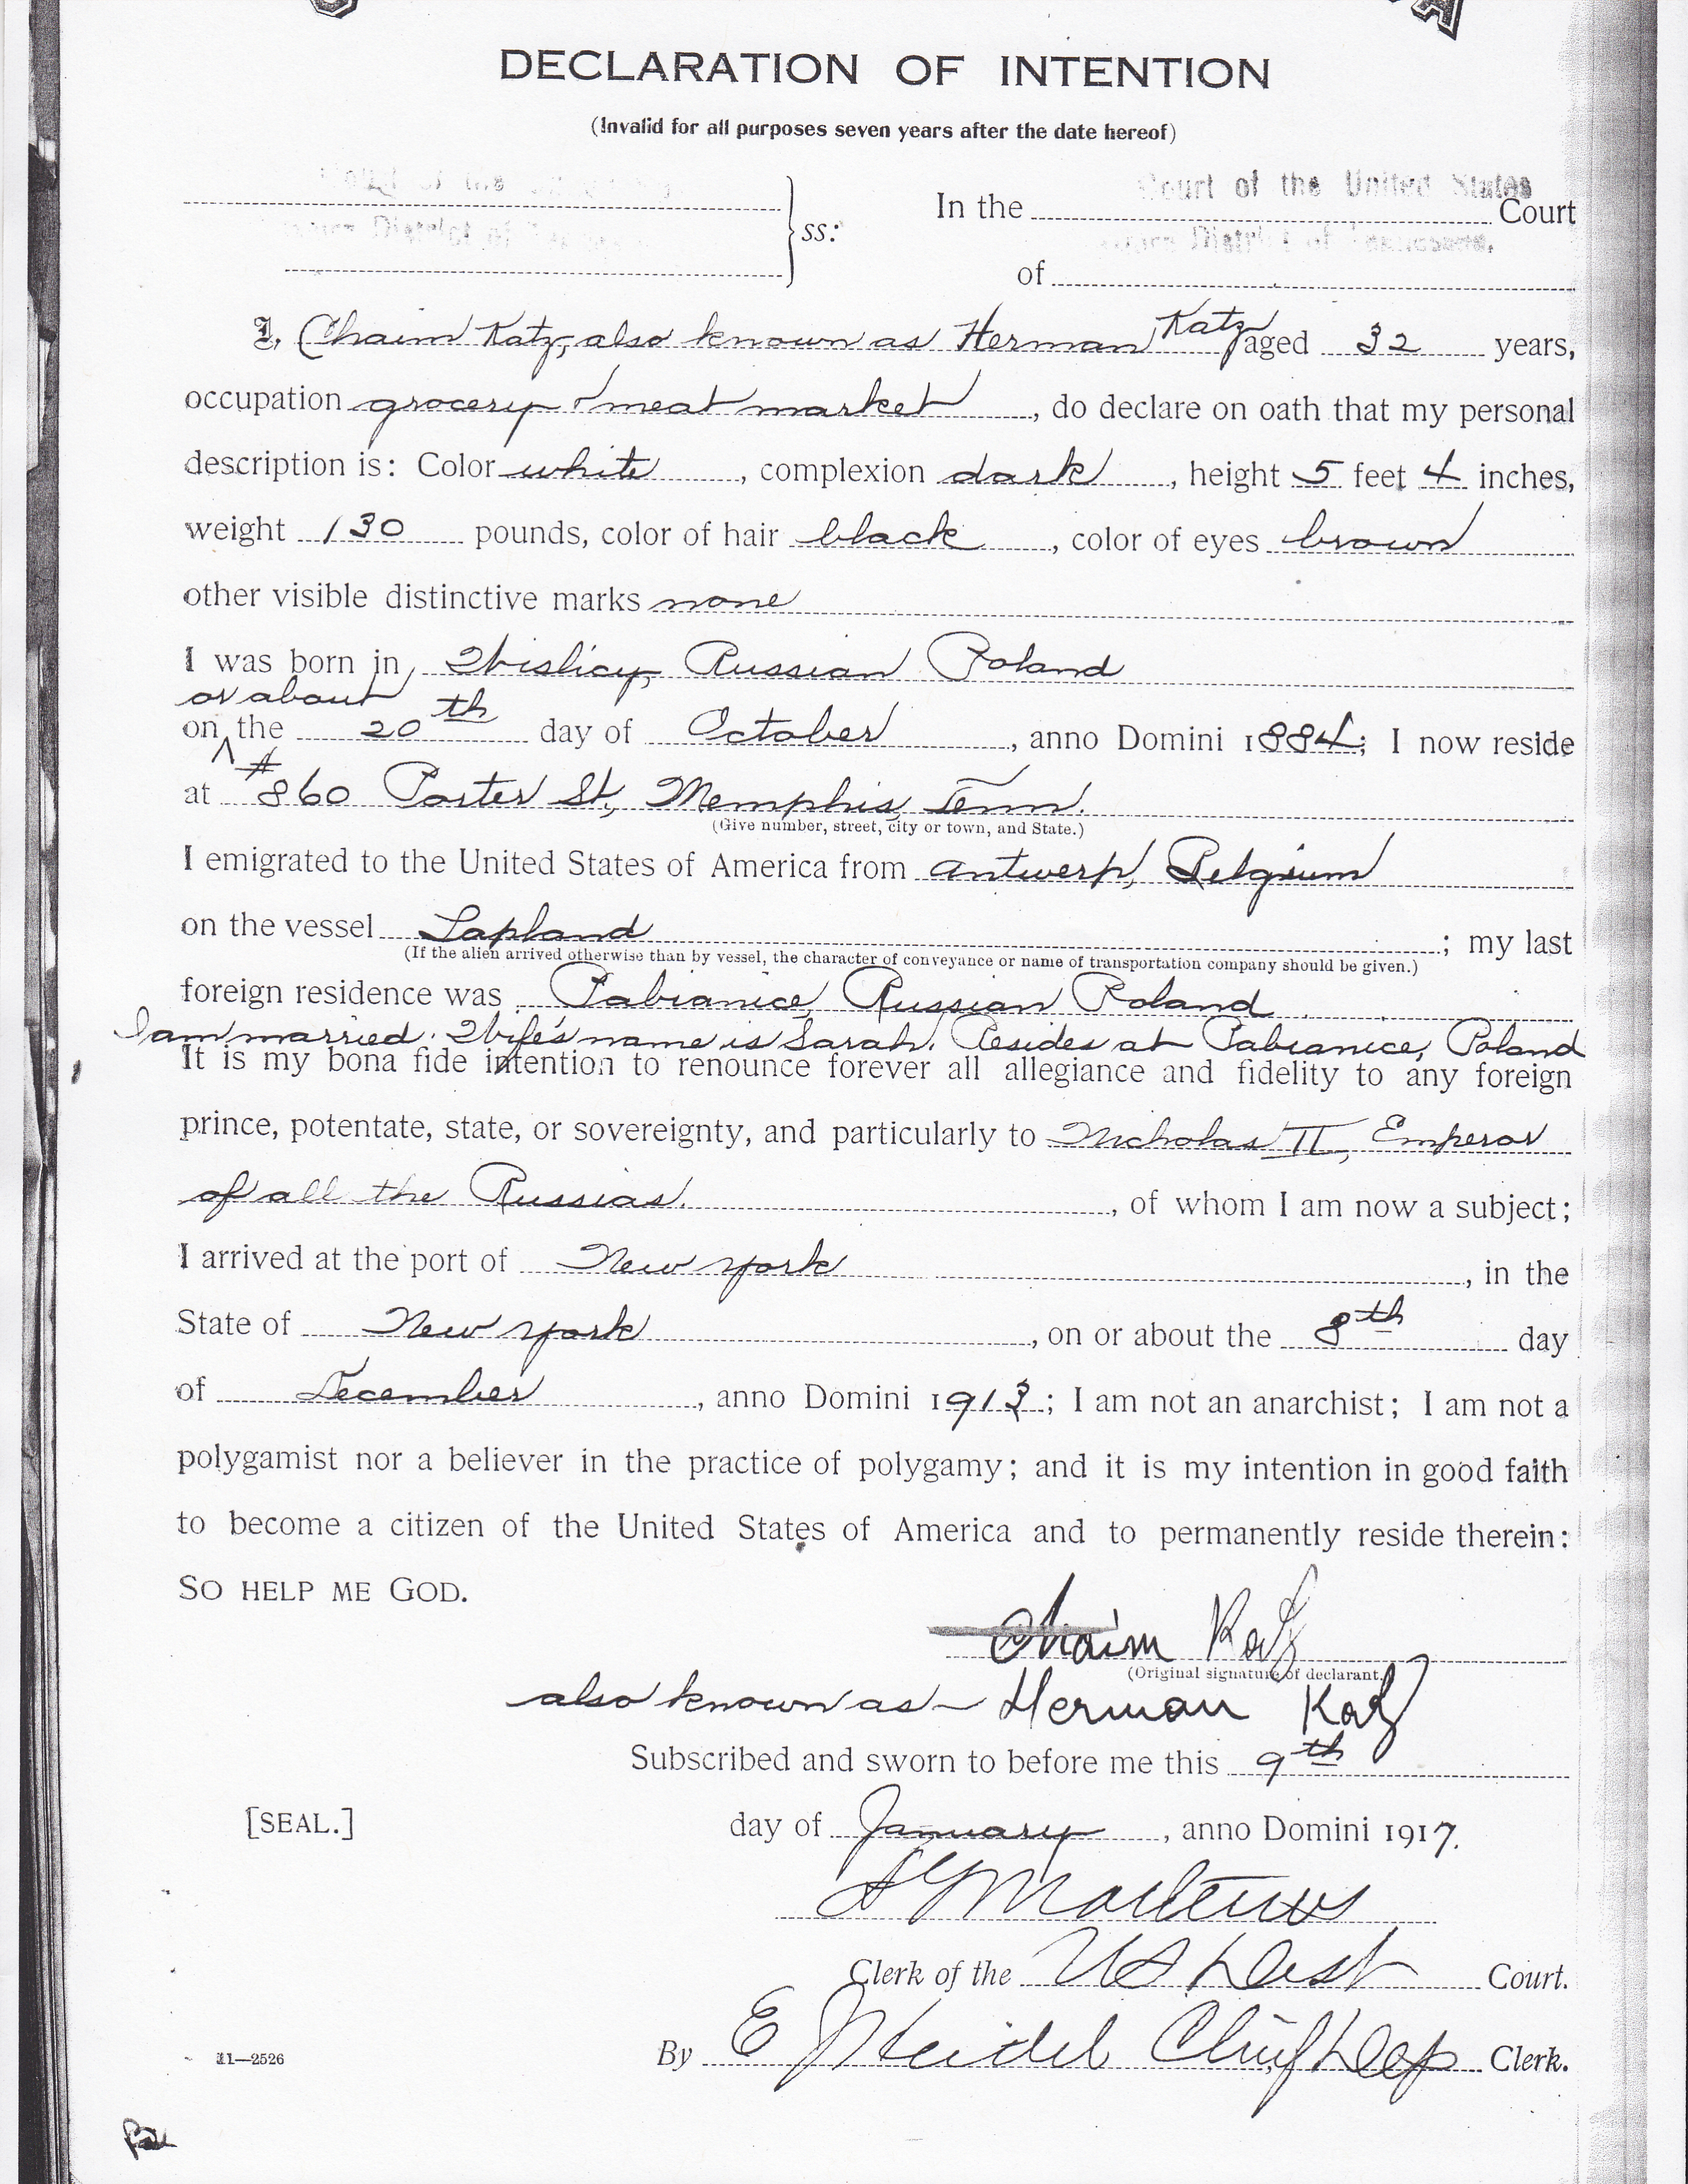 DECLARATION OF INTENTION
(Invalid for all purposes seven years after the date hereof)
Court of the United States
In the Court
ss:
District of
District of Tennessee,
of
I, Chaim Katz, also known as Herman Katz aged 32 years,
occupation grocery & meat market, do declare on oath that my personal
description is: Color white, complexion dark, height 5 feet 4 inches,
weight 130 pounds, color of hair black, color of eyes brown
other visible distinctive marks none
I was born in Wislicy, Russian Poland
or about
on the 20th day of October, anno Domini 1884; I now reside
at #860 Porter St, Memphis, Tenn.
(Give number, street, city or town, and State.)
I emigrated to the United States of America from Antwerp, Belgium
on the vessel Lapland; my last
(If the alien arrived otherwise than by vessel, the character of conveyance or name of transportation company should be given.)
foreign residence was Pabianice, Russian Poland
I am married. Wife's name is Sarah. Resides at Pabianice, Poland
It is my bona fide intention to renounce forever all allegiance and fidelity to any foreign
prince, potentate, state, or sovereignty, and particularly to Nicholas II, Emperor
of all the Russias., of whom I am now a subject;
I arrived at the port of New York, in the
State of New York, on or about the 8th day
of December, anno Domini 1913; I am not an anarchist; I am not a
polygamist nor a believer in the practice of polygamy; and it is my intention in good faith
to become a citizen of the United States of America and to permanently reside therein:
SO HELP ME GOD.
Chaim Katz
(Original signature of declarant.)
also known as - Herman Katz
Subscribed and sworn to before me this 9th
[SEAL.] day of January, anno Domini 1917.
Clerk of the US Dist Court.
By E Clerk.
11—2526